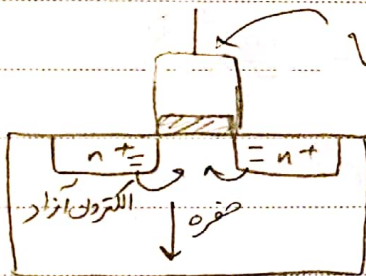 n+ = = n+
الکترون آزاد
حفره